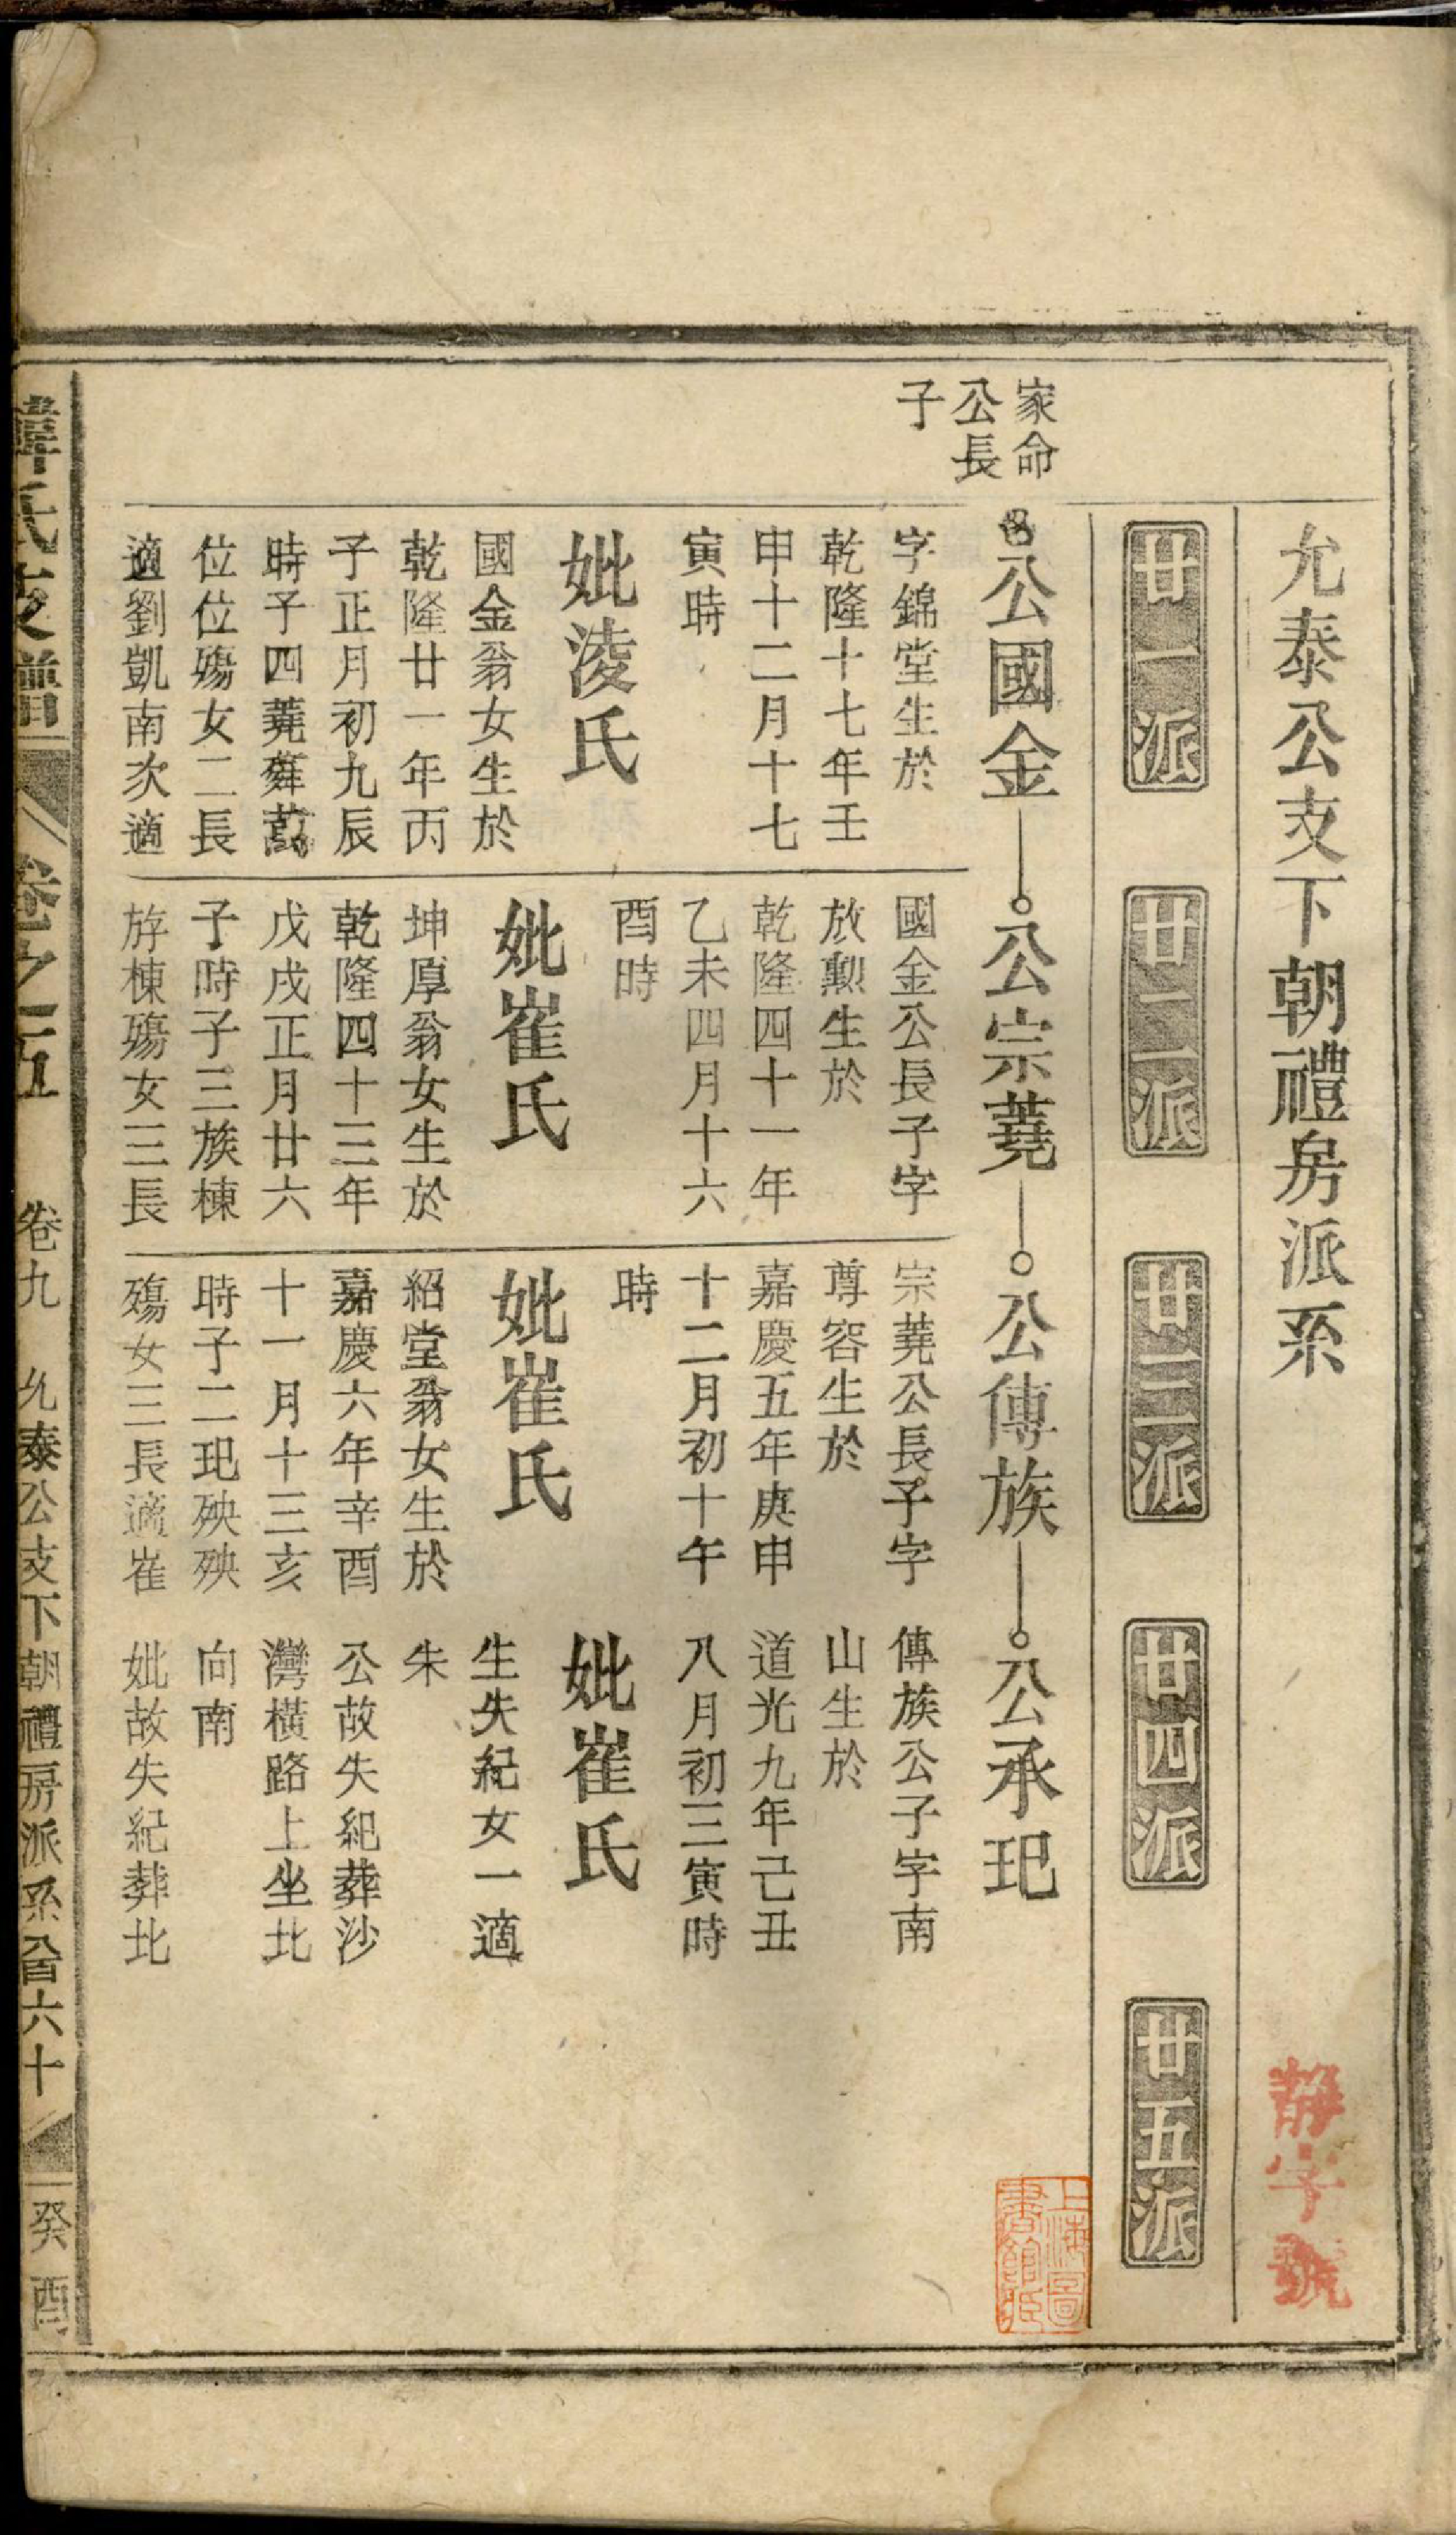 允泰公支下朝禮房派系
靜字號
廿一派
廿二派
廿三派
廿四派
廿五派
家命
公長
子
公國金
字錦堂生於
乾隆十七年壬
申十二月十七
寅時
妣淩氏
國金翁女生於
乾隆廿一年丙
子正月初九辰
時子四蕘蕣
位位殤女二長
適劉凱南次適
公宗蕘
國金公長子字
放勳生於
乾隆四十一年
乙未四月十六
酉時
妣崔氏
坤厚翁女生於
乾隆四十三年
戊戌正月廿六
子時子三族棟
斿棟殤女三長
公傳族
宗蕘公長子字
尊容生於
嘉慶五年庚申
十二月初十午
時
妣崔氏
紹堂翁女生於
嘉慶六年辛酉
十一月十三亥
時子二玘殃殃
殤女三長適崔
公承玘
傳族公子字南
山生於
道光九年己丑
八月初三寅時
妣崔氏
生失紀女一適
朱
公故失紀葬沙
灣橫路上坐北
向南
妣故失紀葬北
上海圖
書館藏
韋氏支譜
卷之五
卷九
允泰公支下朝禮房派系
六十
癸酉